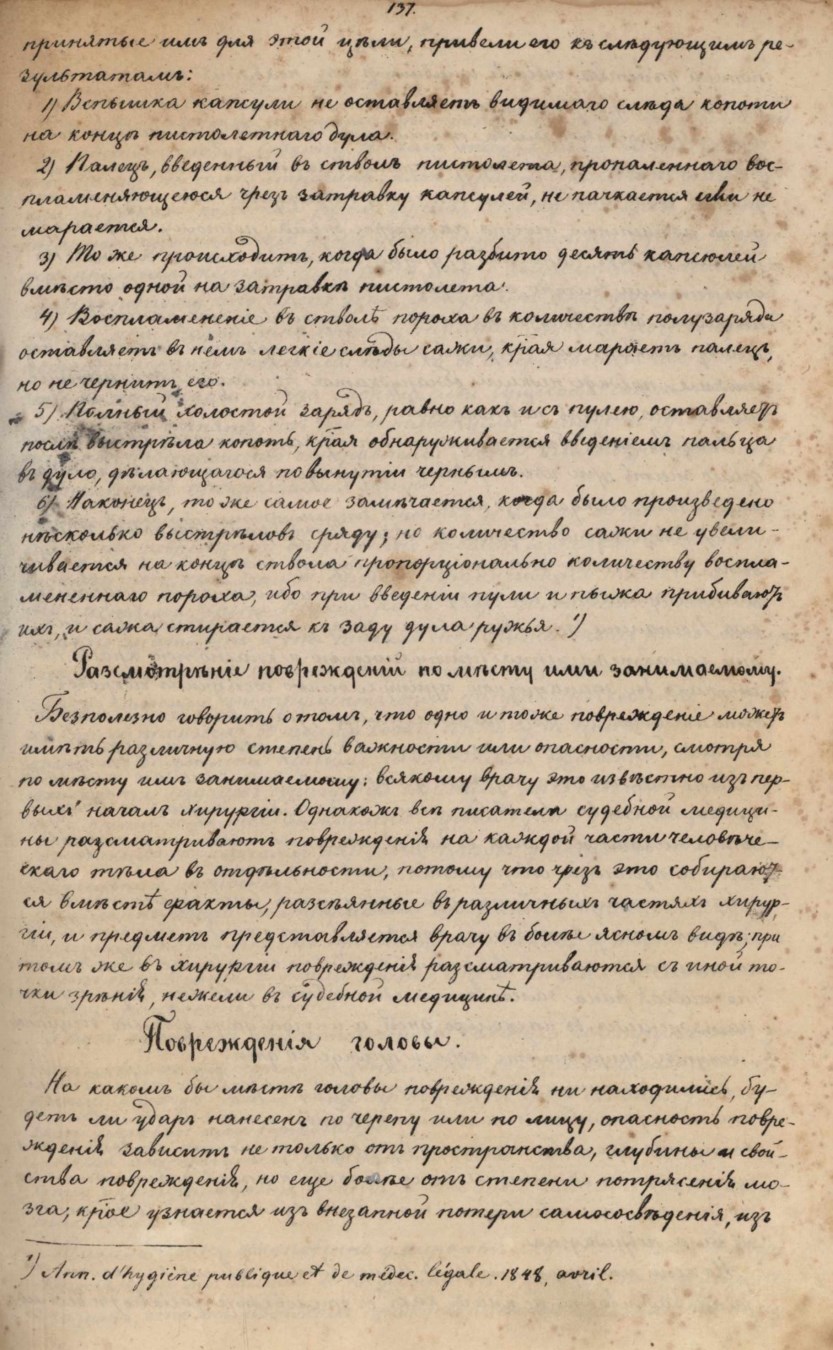 137.
принятые имъ для этой цѣли, привели его къ слѣдующимъ ре-
зультатамъ:
1) Вспышка капсули не оставляетъ видимаго слѣда копоти
на концѣ пистолетнаго дула.
2) Палецъ, введенный въ стволъ пистолета, пропаленнаго вос-
пламеняющеюся чрезъ затравку капсулей, не пачкается или не
марается.
3) То же происходитъ, когда было разбито десять капсюлей
вмѣсто одной на затравкѣ пистолета.
4) Воспламененіе въ стволѣ пороха въ количествѣ полузаряда
оставляетъ въ нёмъ легкіе слѣды сажи, края мараетъ палецъ,
но не чернитъ его.
5) Полный холостой зарядъ, равно какъ и съ пулею, оставляетъ
послѣ выстрѣла копоть, края обнаруживается введеніемъ пальца
въ дуло, дѣлающагося по вынутіи чернымъ.
6) Наконецъ, то же самое замѣчается, когда было произведено
нѣсколько выстрѣловъ сряду; но количество сажи не увели-
чивается на концѣ ствола пропорціонально количеству воспла-
мененнаго пороха, ибо при введеніи пули и пыжа прибиваютъ
ихъ, и сажа стирается къ заду дула ружья. 1)
Разсмотрѣніе поврежденій по мѣсту ими занимаемому.
Безполезно говорить о томъ, что одно и тоже поврежденіе можетъ
имѣть различную степень важности или опасности, смотря
по мѣсту имъ занимаемому; всякому врачу это извѣстно изъ пер-
выхъ началъ хирургіи. Однакожъ всѣ писатели судебной медици-
ны разсматриваютъ поврежденія на каждой части человѣче-
скаго тѣла въ отдѣльности, потому что чрезъ это собирают-
ся вмѣстѣ факты, разсѣянные въ различныхъ частяхъ хирур-
гіи, и предметъ представляется врачу въ болѣе ясномъ видѣ; при
томъ же въ хирургіи поврежденія разсматриваются съ иной то-
чки зрѣнія, нежели въ судебной медицинѣ.
Поврежденія головы.
На какомъ бы мѣстѣ головы поврежденія ни находились, бу-
детъ ли ударъ нанесенъ по черепу или по лицу, опасность повре-
жденія зависитъ не только отъ пространства, глубины и свой-
ства поврежденія, но еще болѣе отъ степени потрясенія мо-
зга, крое узнается изъ внезапной потери самосознѣденія, изъ
1) Ann. d'hygiène publique et de médec. légale. 1848, avril.